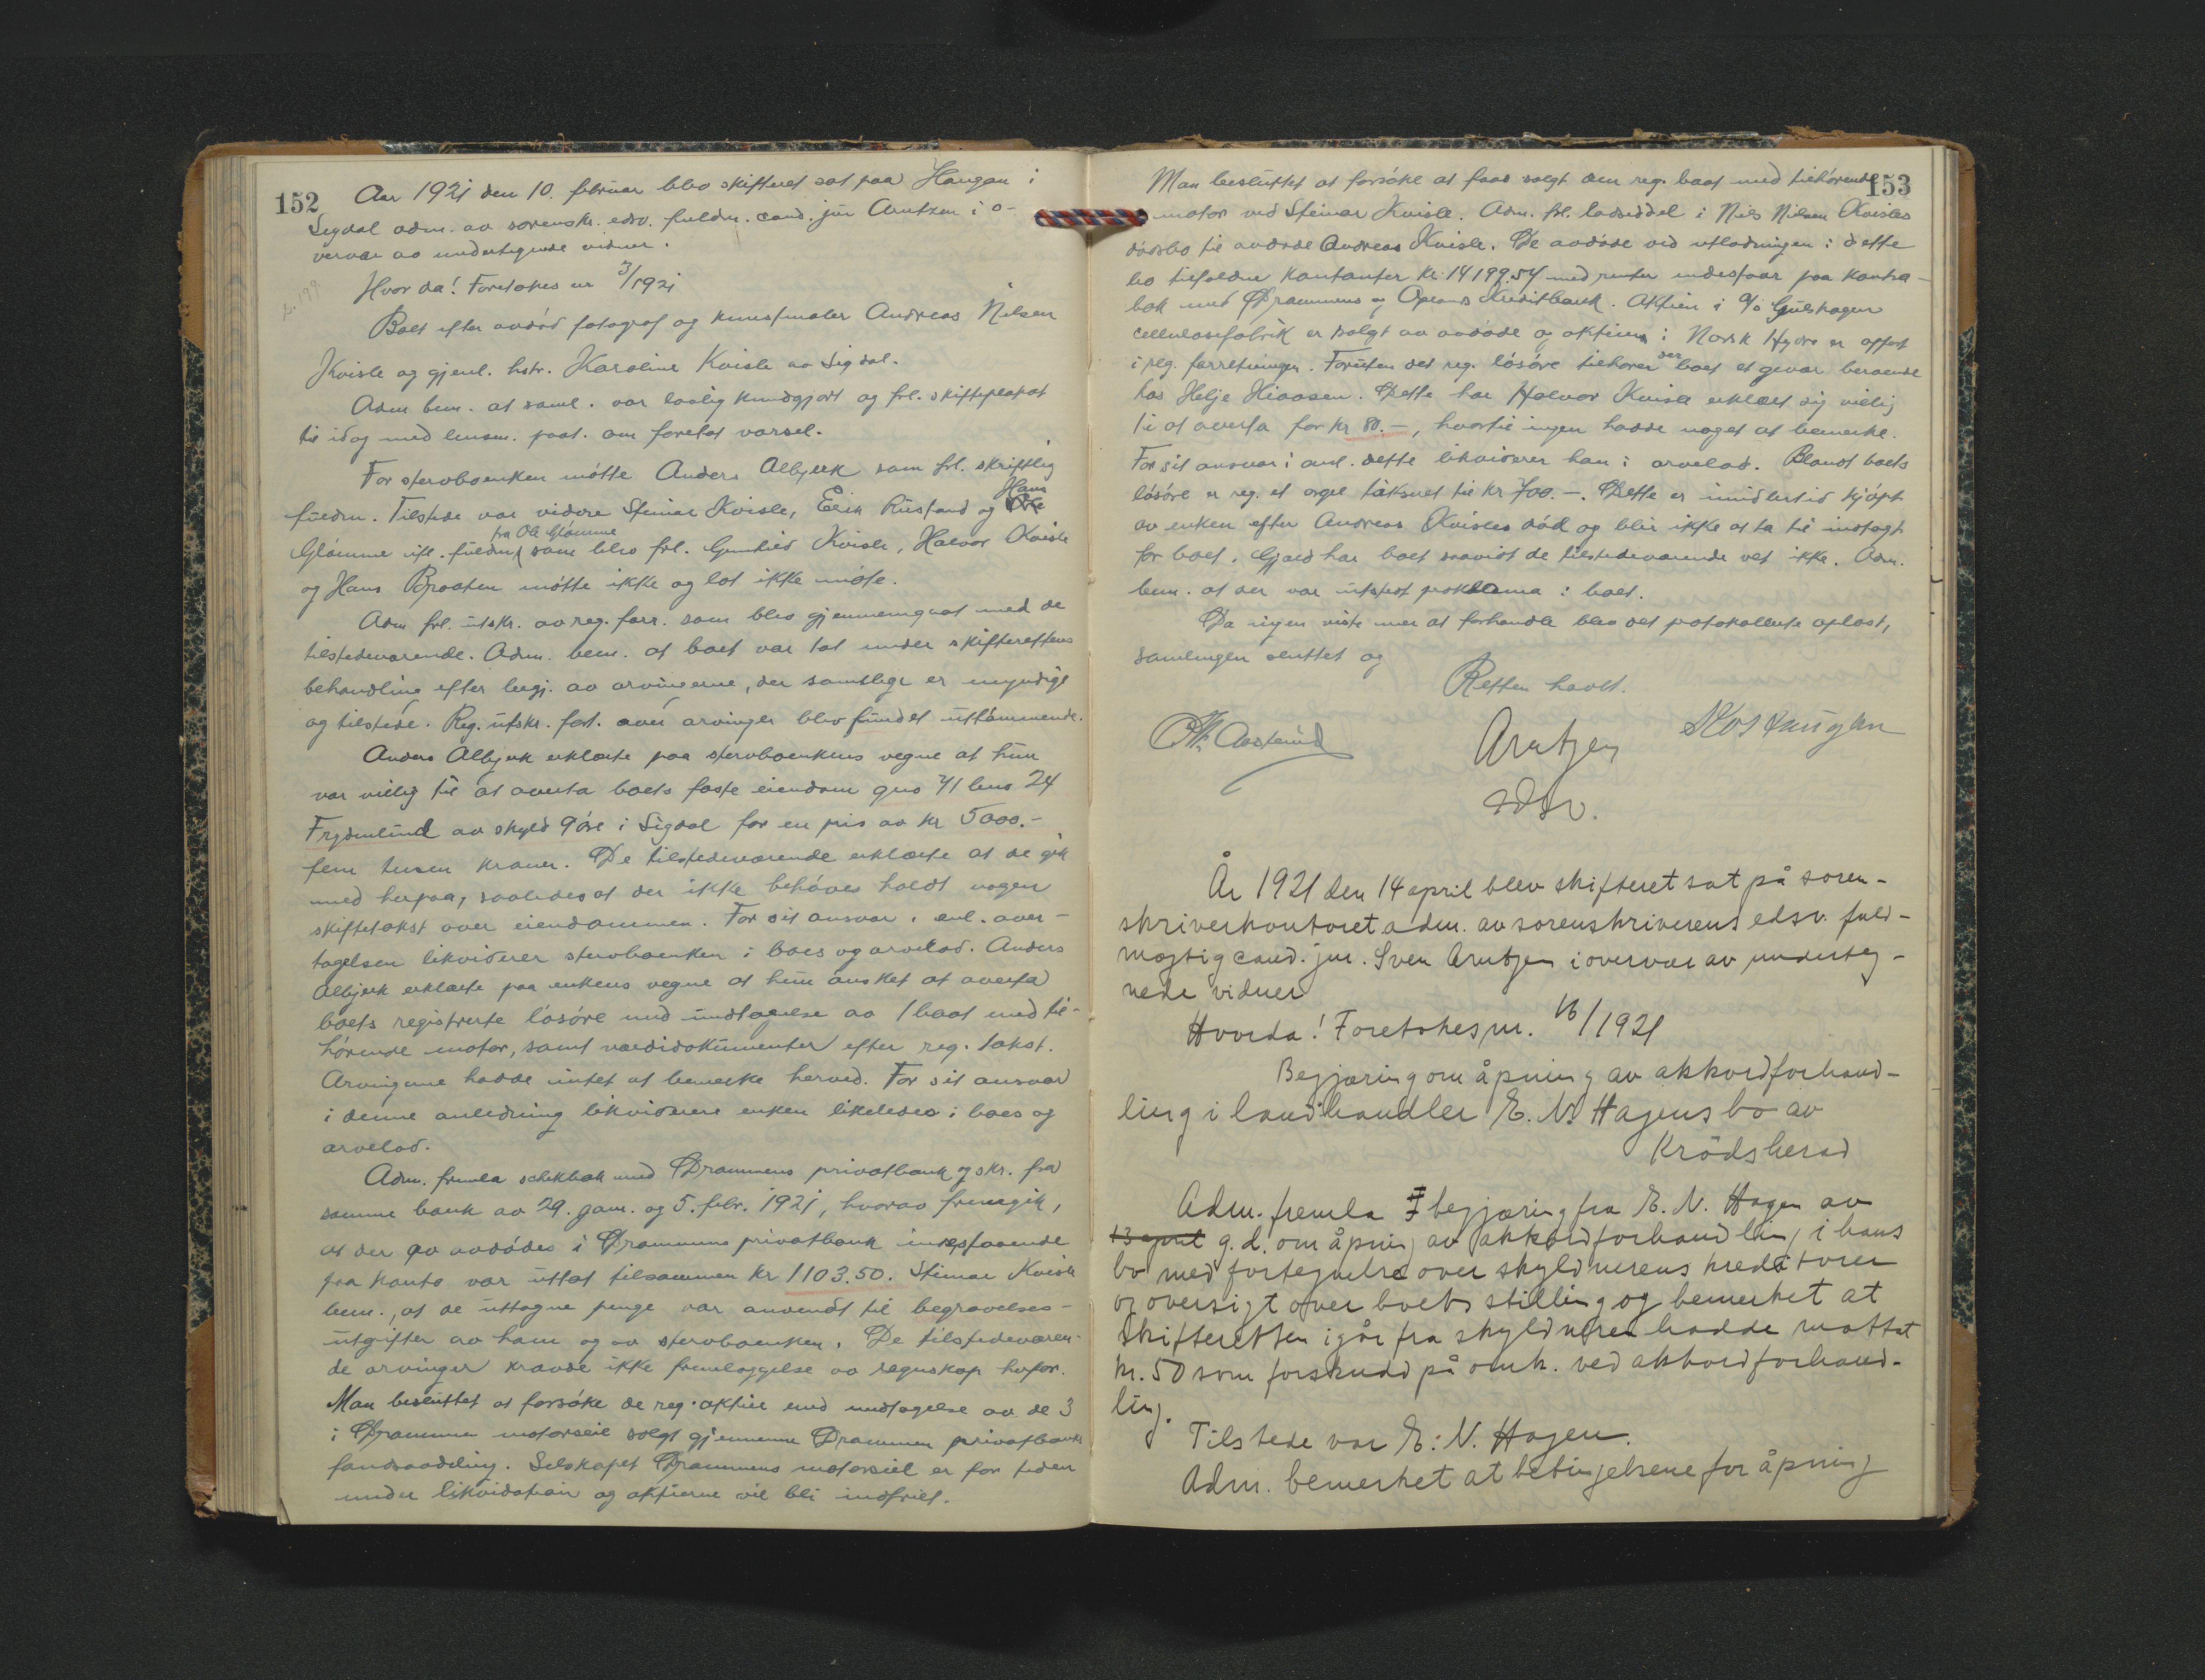 152
Aar 1921 den 10. februar blev skifteret sat paa Haugan i
Sigdal adm. av sorenskr. edsv. fuldm. cand. jur Arntzen i o-
vervær av undertegnede vidner.
Hvor da! Foretokes nr 3/1921
Boet efter avdød fotograf og kunstmaler Andreas Nilsen
Kvisle og gjenl. hstr. Karoline Kvisle av Sigdal.
Adm bem. at saml. var lovlig kundgjort og frl. skifteplakat
til idag med lensm. paat. om foretat varsel.
For stervboenken møtte Anders Albjerk som frl. skriftlig
fuldm. Tilstede var videre Steinar Kvisle, Erik Rustand og Hans
Glømme ifl. fuldm fra Ole Glømme som blev frl. Gunhild Kvisle, Halvor Kvisle
og Hans Braaten møtte ikke og lot ikke møte.
Adm frl. utskr. av reg. forr. som blev gjennemgaat med de
tilstedeværende. Adm. bem. at boet var tat under skifterettens
behandling efter begj. av arvingerne, der samtlige er myndige
og tilstede. Reg. utskr. fort. over arvinger blev fundet uttømmende.
Anders Albjerk erklærte paa stervboenkens vegne at hun
var villig til at overta boets faste eiendom gno 41 bno 24
Frydenlund av skyld 9 øre i Sigdal for en pris av kr 5000.-
fem tusen kroner. De tilstedeværende erklærte at de gik
med herpaa, saaledes at der ikke behøves holdt nogen
skiftetakst over eiendommen. For sit ansvar i anl. over-
tagelsen likviderer stervboenken i boes og arvelod. Anders
Albjerk erklærte paa enkens vegne at hun ønsket at overta
boets registrerte løsøre med undtagelse av 1 baat med til-
hørende motor, samt værdidokumenter efter reg. takst.
Arvingerne hadde intet at bemerke herved. For sit ansvar
i denne anledning likviderer enken likeledes i boes og
arvelod.
Adm. fremla sjekkbok med Drammens privatbank og skr. fra
samme bank av 29. jan. og 5. febr. 1921, hvorav fremgik,
at der av avdødes i Drammens privatbank indestaaende
paa konto var uttat tilsammen kr 1103.50. Steinar Kvisle
bem., at de uttagne penge var anvendt til begravelses-
utgifter av ham og av stervboenken. De tilstedeværen-
de arvinger krævde ikke fremlæggelse av regnskap herfor.
Man besluttet at forsøke de reg. aktier med undtagelse av de 3
i Drammens motorseil solgt gjennem Drammens privatbanks
fondsavdeling. Selskapet Drammens motorseil er for tiden
under likvidation og aktierne vil bli indfriet.
153
Man besluttet at forsøke at faa solgt den reg. baat med tilhørende
motor ved Steinar Kvisle. Adm. frl. lodseddel i Nils Nilsen Kvisles
dødsbo til avdøde Andreas Kvisle. De avdøde ved utlodningen i dette
bo tilfaldne kontanter kr. 14199.54 med renter indestaar paa kontra-
bok med Drammens og Oplands Kreditbank. Aktien i A/s Gulskogen
cellulosefabrik er solgt av avdøde og aktierne i Norsk Hydro er opført
i reg. forretningen. Foruten det reg. løsøre tilhører der boet et gevær beroende
hos Helje Kiaasen. Dette har Halvor Kvisle erklært sig villig
til at overta for kr 80.-, hvortil ingen hadde noget at bemerke.
For sit ansvar i anl. dette likviderer han i arvelod. Blandt boets
løsøre er reg. et orgel takseret til kr 700.-. Dette er imidlertid kjøpt
av enken efter Andreas Kvisles død og blir ikke at ta til indtægt
for boet. Gjæld har boet saavidt de tilstedeværende vet ikke. Adm.
bem. at der var utstedt proklama i boet.
Da ingen visste mer at forhandle blev det protokollerte oplæst,
samlingen sluttet og
Retten hævet.
Arntzen
edsv.
År 1921 den 14 april blev skifteret sat på soren-
skriverkontoret adm. av sorenskriverens edsv. fuld-
mægtig cand. jur. Sven Arntzen i overvær av underteg-
nede vidner
Hvorda! Foretokes nr. 16/1921
Begjæring om åpning av akkordforhand-
ling i landhandler E. N. Hagens bo av
Krødsherad
Adm. fremla begjæring fra E. N. Hagen av
13 april g.d. om åpning av akkordforhandling i hans
bo med fortegnelse over skyldnerens kreditorer
og oversigt over boets stilling og bemerket at
skifteretten igår fra skyldneren hadde mottat
kr. 50 som forskudd på omk. ved akkordforhand-
ling.
Tilstede var E. N. Hagen.
Adm. bemerket at betingelsene for åpning